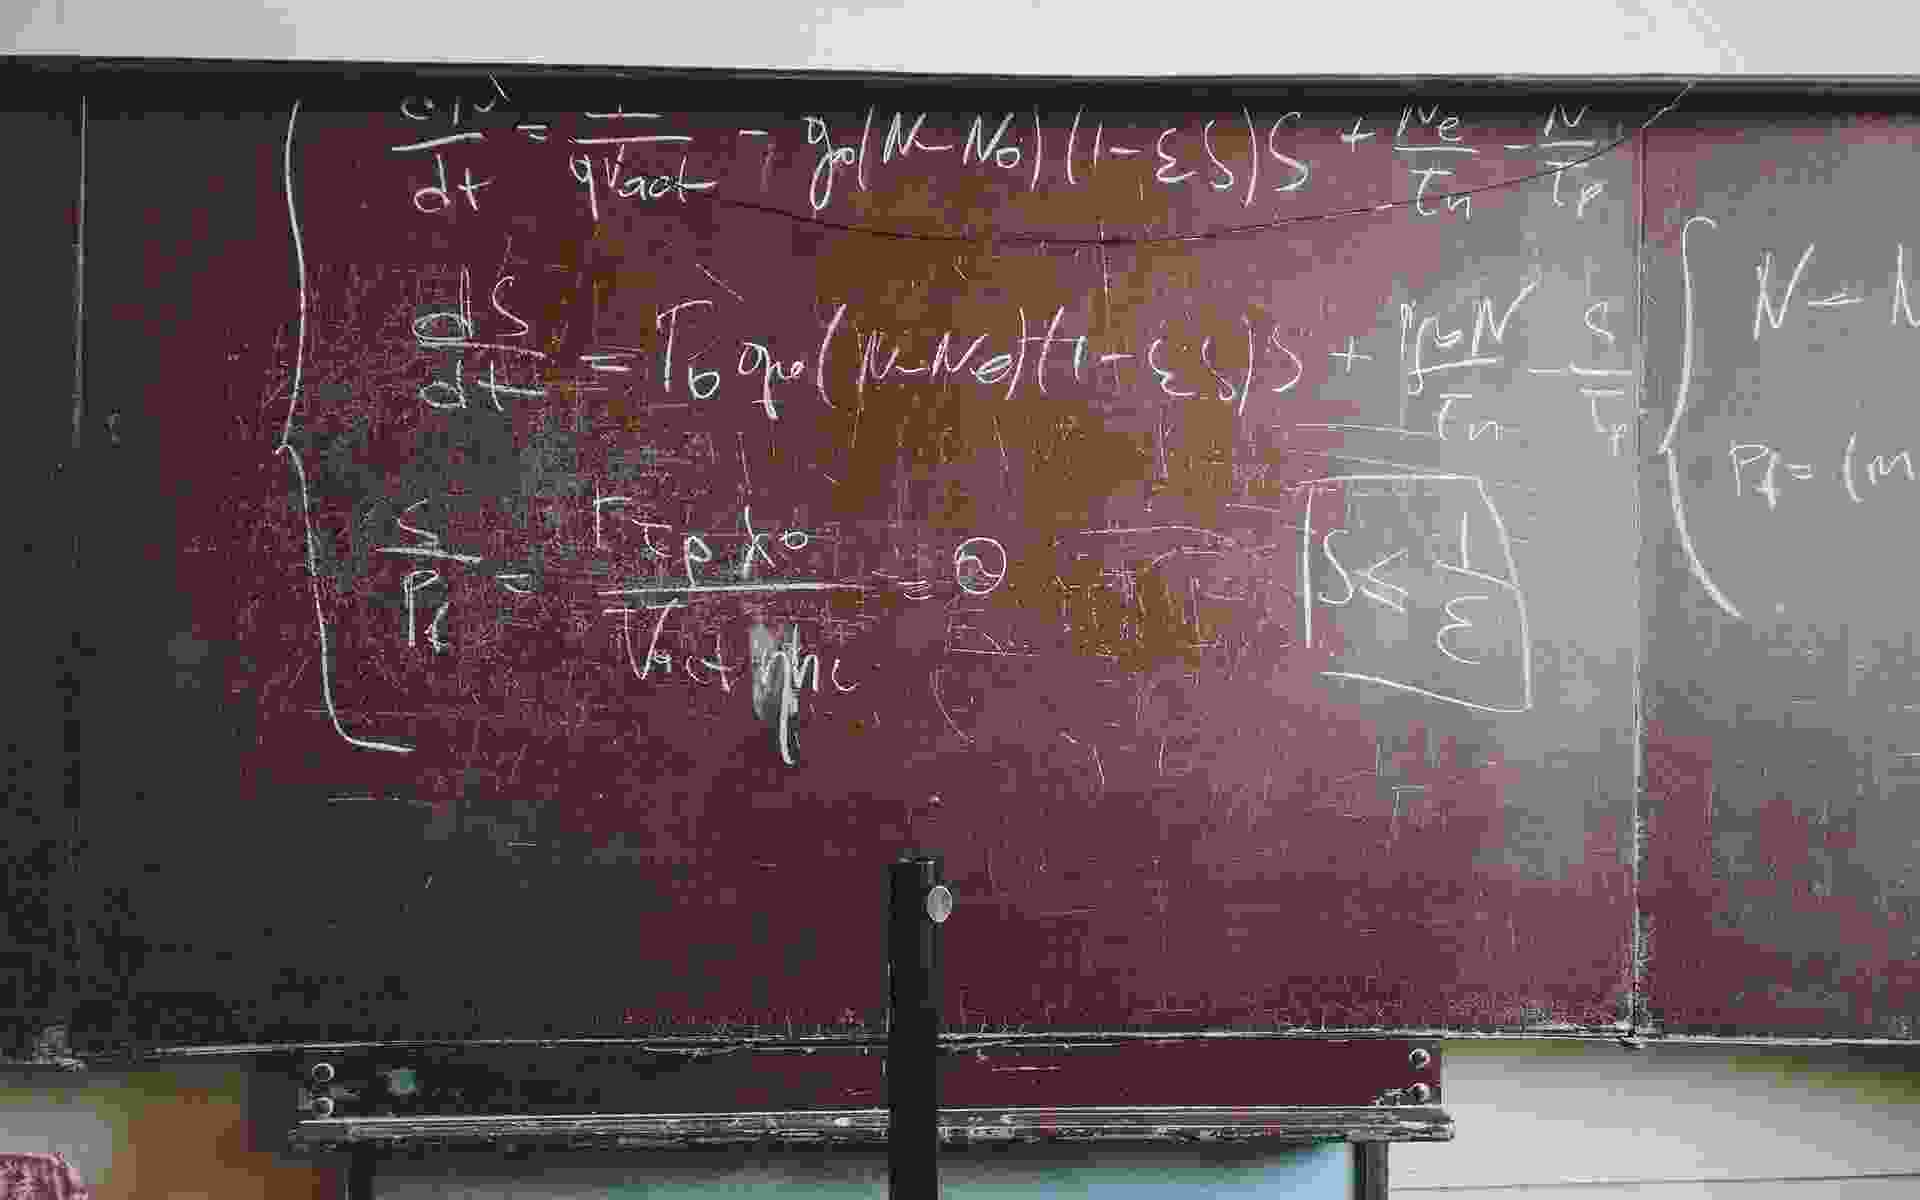 dN/dt = I/(qVact) - g0(N-N0)(1-εS)S + Ne/τn - N/τp
dS/dt = Γ0 g0(N-N0)(1-εS)S + ΓβN/τn - S/τp
S/Pf = Γτpλ0/(Vact ηhc) = ②
S< 1/ε
N = N
Pf = (m